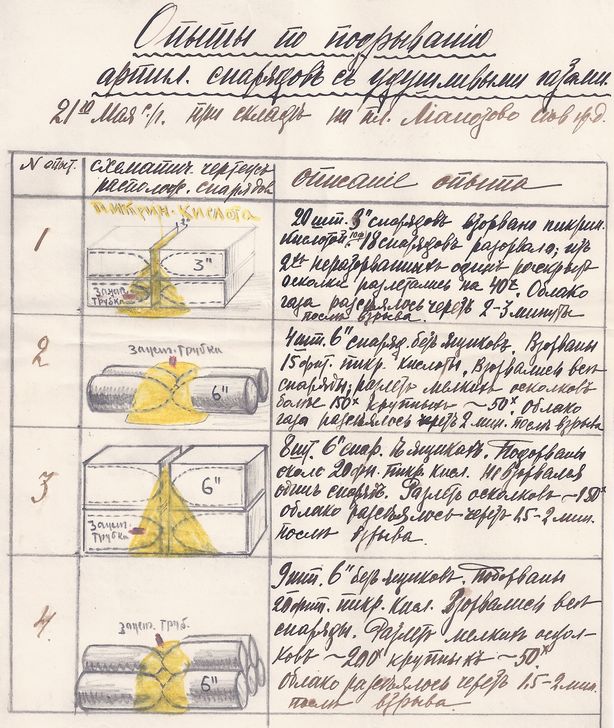 Опыты по подрыванію
артил. снарядовъ съ удушливыми газами
21го Мая с/г. при складѣ на пл.
N опыт.
схематич. чертежъ
располож. снарядов
описаніе опыта
1
Пикрин. кислота
3"
3"
Зацеп. трубка
20 шт. 3" снарядовъ взорвано пикрин.
кислотой. 18 снарядовъ разорвало; изъ
2хъ неразорванныхъ одинъ раскрытъ
осколки разлетались на 40х. Облако
газа разсѣялось черезъ 2-3 минуты
послѣ взрыва.
2
Зацеп. трубки
6"
4 шт. 6" снаряд. безъ ящиковъ. Взорваны
15 фнт. пикр. кислоты. Взорвались всѣ
снаряды, разлетъ мелкихъ осколковъ
болѣе 150х крупныхъ ~50х. Облако
газа разсѣялось черезъ 2 мин. послѣ взрыва
3
6"
Зацеп. трубка
8 шт. 6" снар. въ ящикахъ. Подорваны
около 20 фн. пикр. кисл. Не взорвался
одинъ снарядъ. Разлетъ осколковъ ~150х
облако разсѣялось черезъ 1.5-2 мин.
послѣ взрыва.
4.
Зацеп. труб.
6"
9 шт. 6" безъ ящиковъ. Подорваны
20 фнт. пикр. кисл. Взорвались всѣ
снаряды. Разлетъ мелкихъ оскол-
ковъ ~200х крупныхъ ~50х
Облако разсѣялось черезъ 1.5-2 мин.
послѣ взрыва.